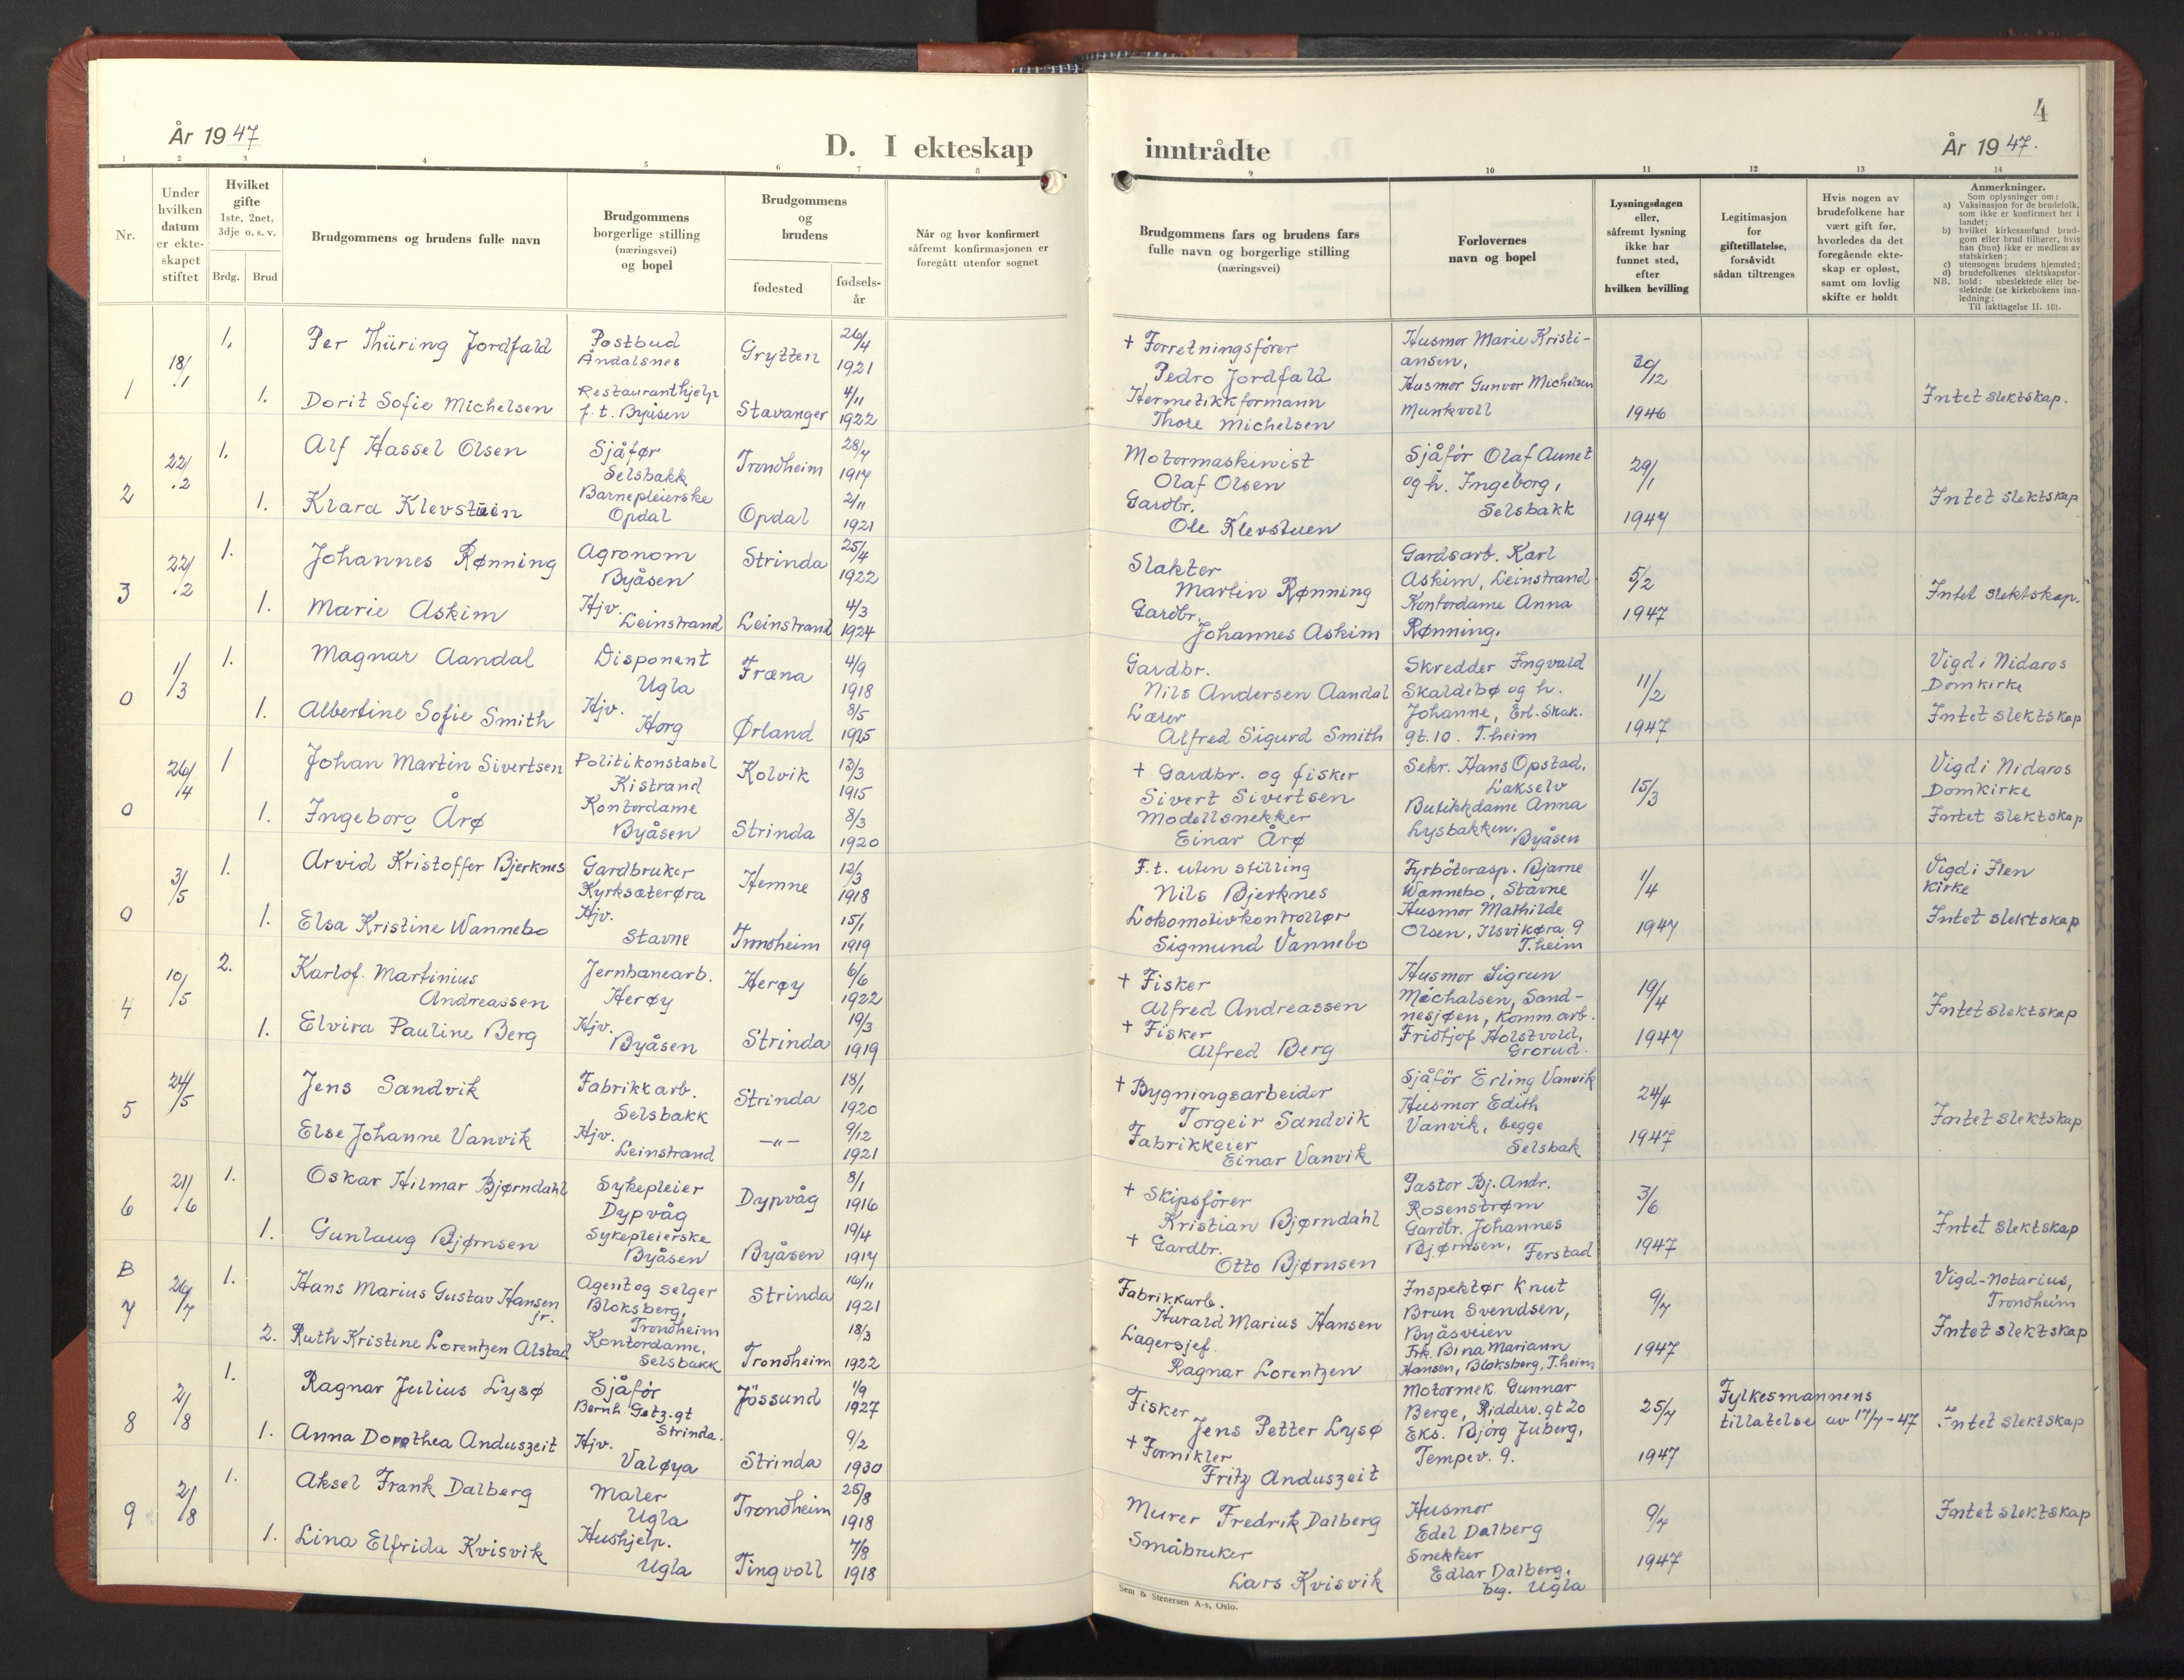 År 1947
D. I ekteskap
1 2 3 4 5 6 7 8
Nr.
Under hvilken datum er ekteskapet stiftet
Hvilket gifte
1ste, 2net, 3dje o. s. v.
Brdg. Brud
Brudgommens og brudens fulle navn
Brudgommens borgerlige stilling (næringsvei) og bopel
Brudgommens og brudens
fødested
fødsels-år
Når og hvor konfirmert
såfremt konfirmasjonen er
foregått utenfor sognet
1 18/1 1. Per Thüring Jordfald Postbud Åndalsnes Grytten 26/4 1921
1. Dorit Sofie Michelsen Restauranthjelp f.t. Byåsen Stavanger 4/11 1922
2 22/2 1. Alf Hassel Olsen Sjåfør Selsbakk Trondheim 28/7 1917
1. Klara Klevstuen Barnepleierske Opdal Opdal 2/11 1921
3 22/2 1. Johannes Rønning Agronom Byåsen Strinda 25/4 1922
1. Marie Askim Hjv. Leinstrand Leinstrand 4/3 1924
0 1/3 1. Magnar Aandal Disponent Ugla Fræna 4/9 1918
1. Albertine Sofie Smith Hjv. Horg Ørland 8/5 1925
0 26/4 1 Johan Martin Sivertsen Politikonstabel Kistrand Kolvik 13/3 1915
1. Ingeborg Årø Kontordame Byåsen Strinda 8/3 1920
0 3/5 1. Arvid Kristoffer Bjerknes Gardbruker Kyrksæterøra Hemne 12/3 1918
1. Elsa Kristine Wannebo Hjv. Stavne Trondheim 15/1 1919
4 10/5 2. Karlof. Martinius Andreassen Jernbanearb. Herøy Herøy 6/6 1922
1. Elvira Pauline Berg Hjv. Byåsen Strinda 19/3 1919
5 24/5 Jens Sandvik Fabrikkarb. Selsbakk Strinda 18/1 1920
Else Johanne Vanvik Hjv. Leinstrand —"— 9/12 1921
6 21/6 1. Oskar Hilmar Bjørndahl Sykepleier Dypvåg Dypvåg 8/1 1916
1. Gunlaug Bjørnsen Sykepleierske Byåsen Byåsen 19/4 1917
B
7 26/7 1. Hans Marius Gustav Hansen jr. Agent og selger Bloksberg, Trondheim Strinda 16/11 1921
2. Ruth Kristine Lorentzen Alstad Kontordame, Selsbakk Trondheim 18/3 1922
8 2/8 1. Ragnar Julius Lysø Sjåfør Bernh. Getz. gt Strinda. Jössund 1/9 1927
1. Anna Dorothea Anduszeit Hjv. Valøya Strinda 9/2 1930
9 2/8 1. Aksel Frank Dalberg Maler Ugla Trondheim 25/8 1918
1. Lina Elfrida Kvisvik Hushjelp. Ugla Tingvoll 7/8 1918
4
inntrådte
År 1947.
9 10 11 12 13 14
Brudgommens fars og brudens fars
fulle navn og borgerlige stilling
(næringsvei)
Forlovernes
navn og bopel
Lysningsdagen
eller,
såfremt lysning
ikke har
funnet sted,
efter
hvilken bevilling
Legitimasjon
for
giftetillatelse,
forsåvidt
sådan tiltrenges
Hvis nogen av
brudefolkene har
vært gift før,
hvorledes da det
foregående ekte-
skap er opløst,
samt om lovlig
skifte er holdt
Anmerkninger.
Som oplysninger om:
a) Vaksinasjon for de brudefolk,
som ikke er konfirmert her i
landet;
b) hvilket kirkesamfund brud-
gom eller brud tilhører, hvis
han (hun) ikke er medlem av
statskirken;
c) utensogns brudens hjemsted;
d) brudefolkenes slektskapsfor-
hold: ubeslektede eller be-
slektede (se kirkebokens inn-
ledning:
NB. Til iakttagelse II. 10).
+ Forretningsfører Pedro Jordfald
Hermetikkformann Thore Michelsen
Husmor Marie Kristiansen,
Husmor Gunvor Michelsen
Munkvoll
30/12 1946
Intet slektskap.
Motormaskinist Olaf Olsen
Gardbr. Ole Klevstuen
Sjåfør Olaf Aunet
og h. Ingeborg,
Selsbakk
29/1 1947
Intet slektskap
Slakter Martin Rønning
Gardbr. Johannes Askim
Gardsarb. Karl
Askim, Leinstrand
Kontordame Anna
Rønning.
5/2 1947
Intet slektskap.
Gardbr. Nils Andersen Aandal
Lærer Alfred Sigurd Smith
Skredder Ingvald
Skaldebø og h.
Johanne, Erl. Skak.
gt. 10. T.heim
11/2 1947
Vigd i Nidaros
Domkirke
Intet slektskap
+ Gardbr. og fisker
Sivert Sivertsen
Modellsnekker
Einar Årø
Sekr. Hans Opstad.
Lakselv
Butikkdame Anna
Lysbakken. Byåsen
15/3
Vigd i Nidaros
Domkirke
Intet slektskap
F.t. uten stilling
Nils Bjerknes
Lokomotivkontrollør
Sigmund Vannebo
Fyrböterasp. Bjarne
Wannebo, Stavne
Husmor Mathilde
Olsen, Ilsvikøra 9
T.heim
1/4 1947
Vigd i Ilen
Kirke
Intet slektskap
+ Fisker
Alfred Andreassen
+ Fisker
Alfred Berg
Husmor Sigrun
Michalsen, Sand-
nesjøen, Komm.arb.
Fridtjof Holstvold,
Grorud.
19/4 1947
Intet slektskap
+ Bygningsarbeider
Torgeir Sandvik
Fabrikkeier
Einar Vanvik
Sjåför Erling Vanvik
Husmor Edith
Vanvik, begge
Selsbak
24/4 1947
Intet slektskap.
+ Skipsfører
Kristian Bjørndahl
+ Gardbr.
Otto Bjørnsen
Pastor Bj. Andr.
Rosenstrøm
Gardbr. Johannes
Bjørnsen, Ferstad
3/6 1947
Intet slektskap
Fabrikkarb.
Harald Marius Hansen
Lagersjef.
Ragnar Lorentzen
Inspektør Knut
Brun Svendsen,
Byåsveien
Frk. Bina Mariann
Hansen, Bloksberg, T.heim
9/7 1947
Vigd-Notarius,
Trondheim
Intet slektskap
Fisker
Jens Petter Lysø
+ Fornikler
Fritz Anduszeit
Motormek. Gunnar
Berge, Ridderv. gt 20
Eks. Bjørg Juberg,
Tempev. 9.
25/7 1947
Fylkesmannens
tillatelse av 17/7-47
Intet slektskap
Murer Fredrik Dalberg
Småbruker
Lars Kvisvik
Husmor
Edel Dalberg
Snekker
Edlar Dalberg,
beg. Ugla
9/7 1947
Intet slektskap
Sem & Stenersen A-s, Oslo.